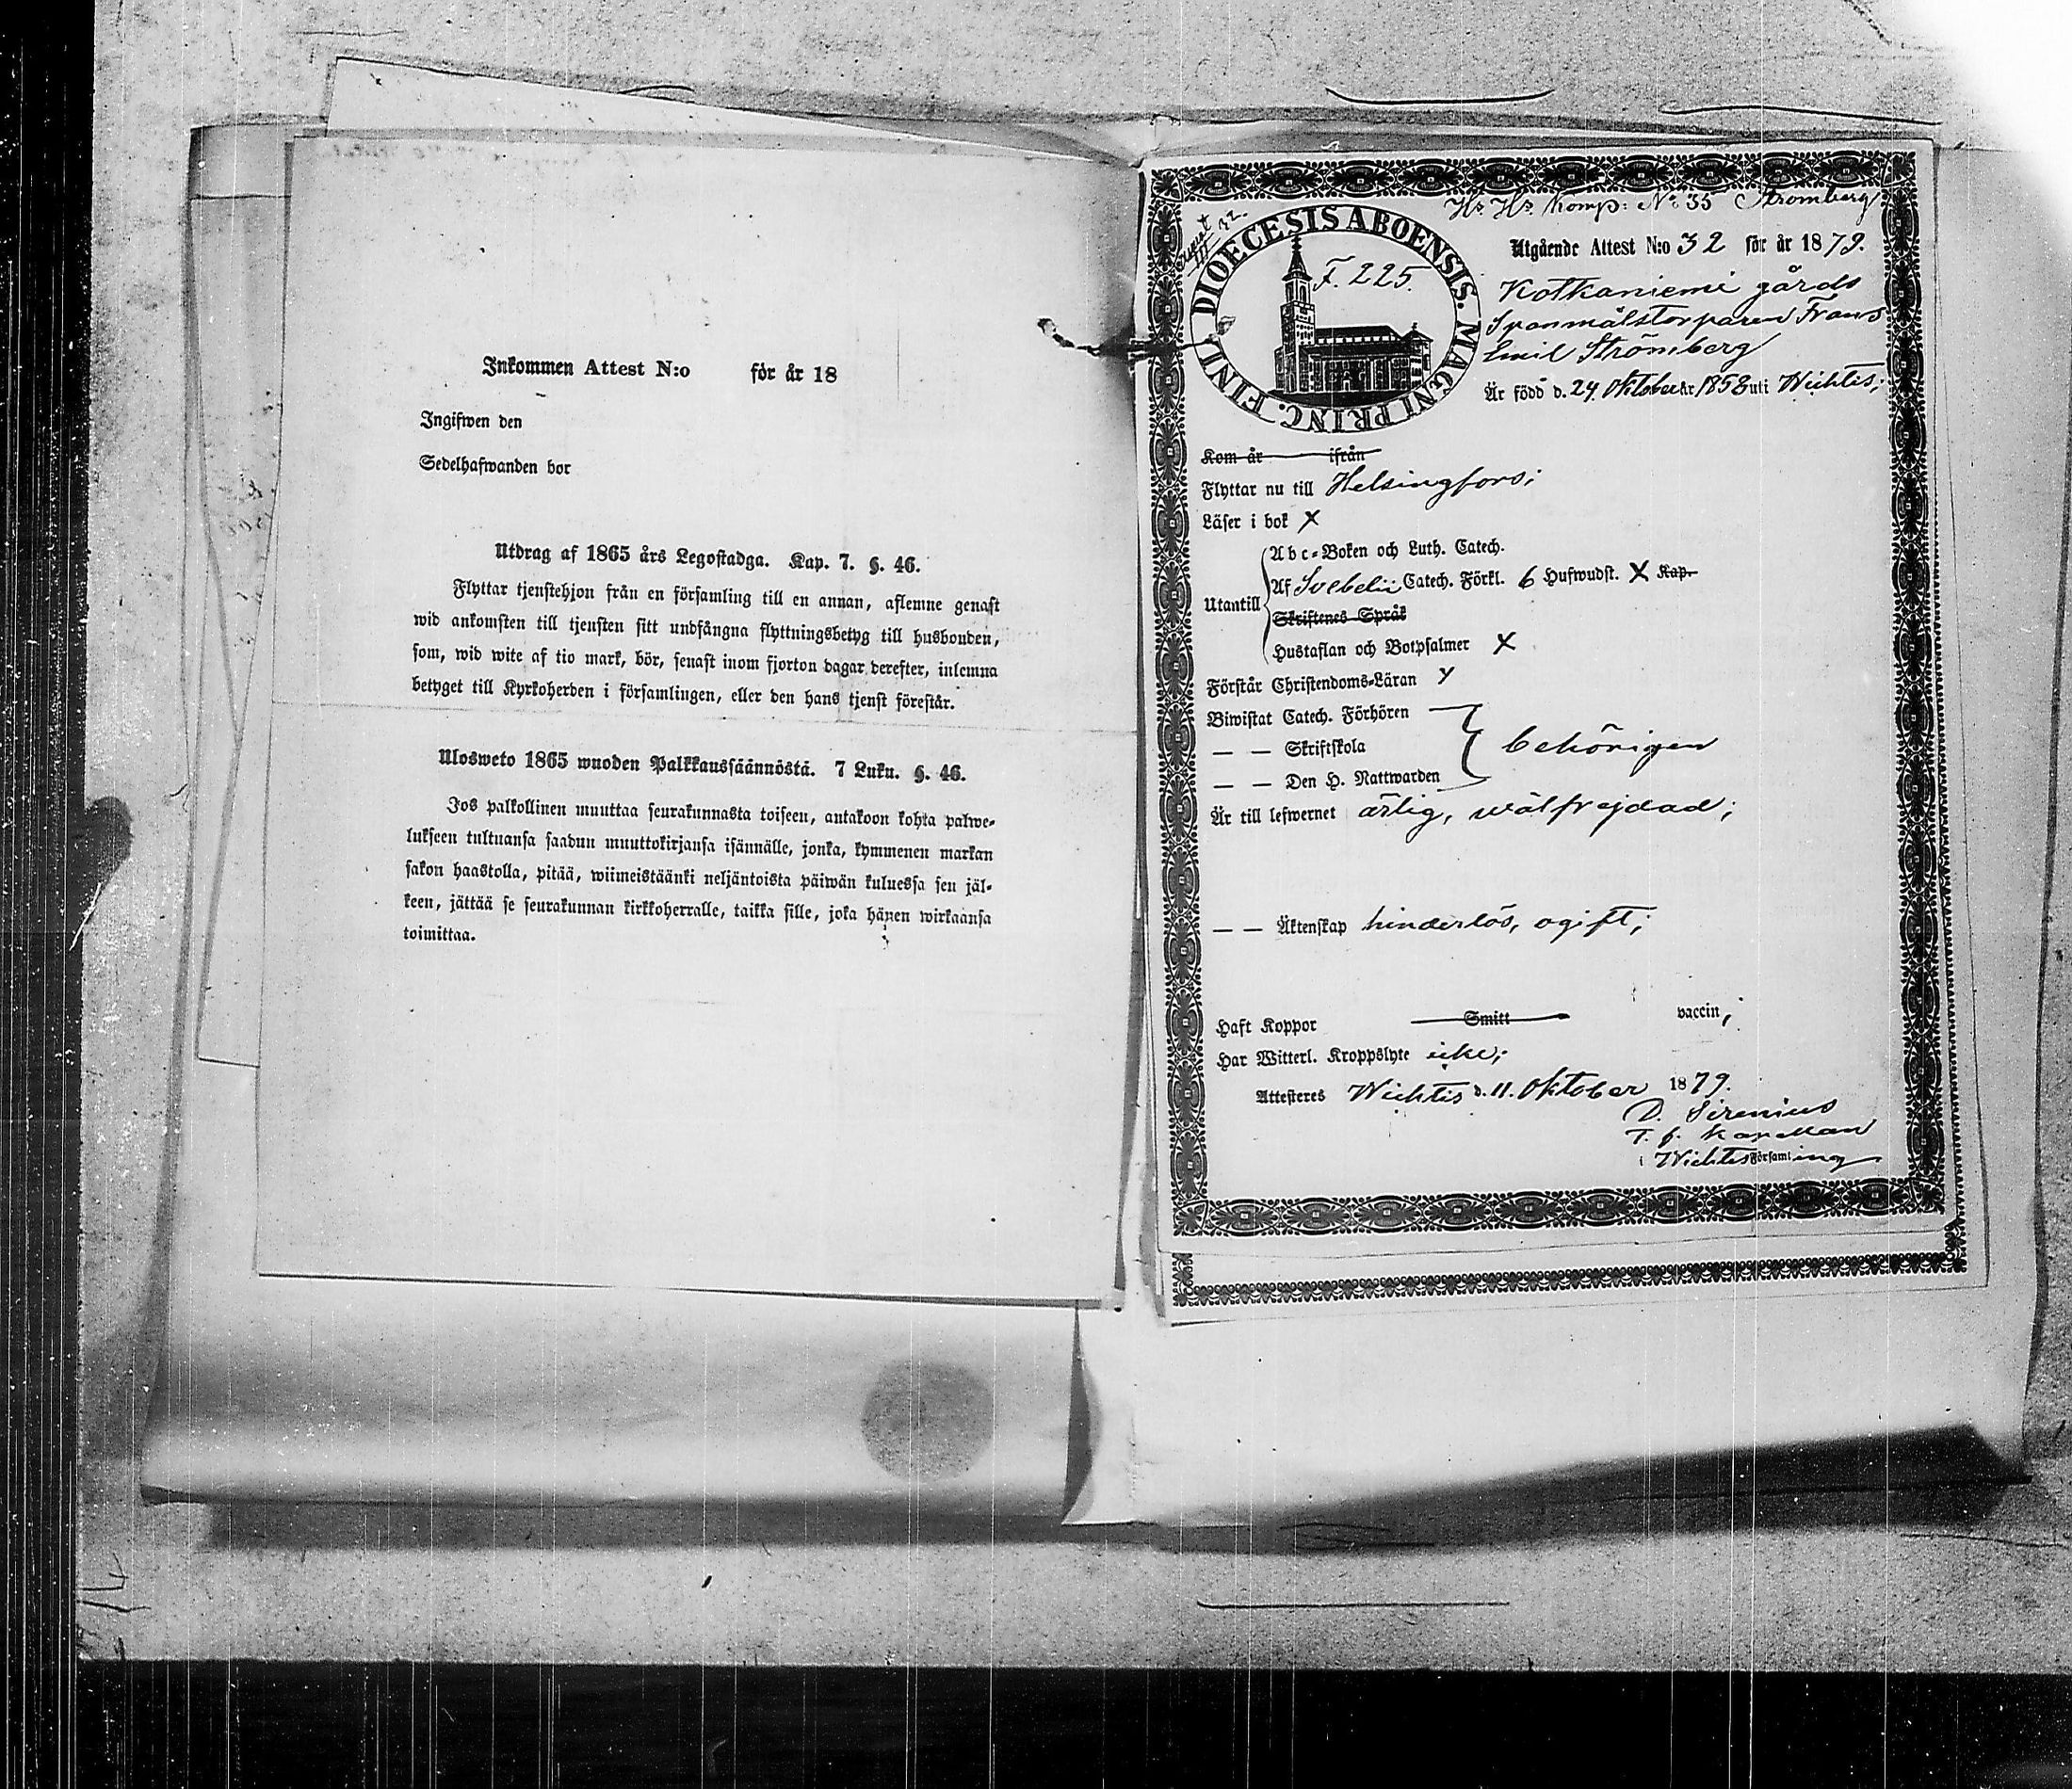 Inkommen Attest N:o för år 18
Ingifwen den
Sedelhafwanden bor
Utdrag af 1865 års Legostadga. Kap. 7. §. 46.
Flyttar tjenstehjon från en församling till en annan, aflemne genast
wid ankomsten till tjensten sitt undfångna flyttningsbetyg till husbonden,
som, wid wite af tio mark, bör, senast inom fjorton dagar derefter, inlemna
betyget till Kyrkoherden i församlingen, eller den hans tjenst förestår.
Ulosweto 1865 wuoden Palkkaussäännöstä. 7 Luku. §. 46.
Jos palkollinen muuttaa seurakunnasta toiseen, antakoon kohta palwe-
lukseen tultuansa saadun muuttokirjansa isännälle, jonka, kymmenen markan
sakon haastolla, pitää, wiimeistäänki neljäntoista päiwän kuluessa sen jäl-
keen, jättää se seurakunnan kirkkoherralle, taikka sille, joka hänen wirkaansa
toimittaa.
Komp: No 35 Strömberg
DIOECESIS ABOENSIS. MAGNI PRINC. FINL.
F. 225.
Utgående Attest N:o 32 för år 1879.
Kotkaniemi gårds
Spanmålstorparen Frans
Emil Strömberg
Är född d. 24 Oktober år 1858 uti Wichtis;
Kom år ifrån
Flyttar nu till Helsingfors;
Läser i bok X
Utantill
Abc-Boken och Luth. Catech.
Af Svebelii Catech. Förkl. 6 Hufwudst. X Kap.
Skriftenes Språk
Hustaflan och Botpsalmer X
Förstår Christendoms-Läran Y
Biwistat Catech. Förhören
— — Skriftskola behörigen
— — Den H. Nattwarden
Är till lefwernet ärlig, wälfrejdad;
— — Äktenskap hinderlös, ogift;
Haft Koppor Smitt vaccin,
Har Witterl. Kroppslyte icke;
Attesteres Wichtis d. 11. Oktober 1879.
D. Sirenius
T. f. Kapellan
i Wichtis Församling